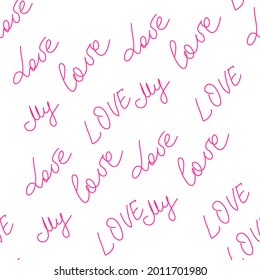 Love love Love love My
My LOVE My LOVE
Love love Love love
My LOVE My LOVE
shutterstock.com · 2011701980